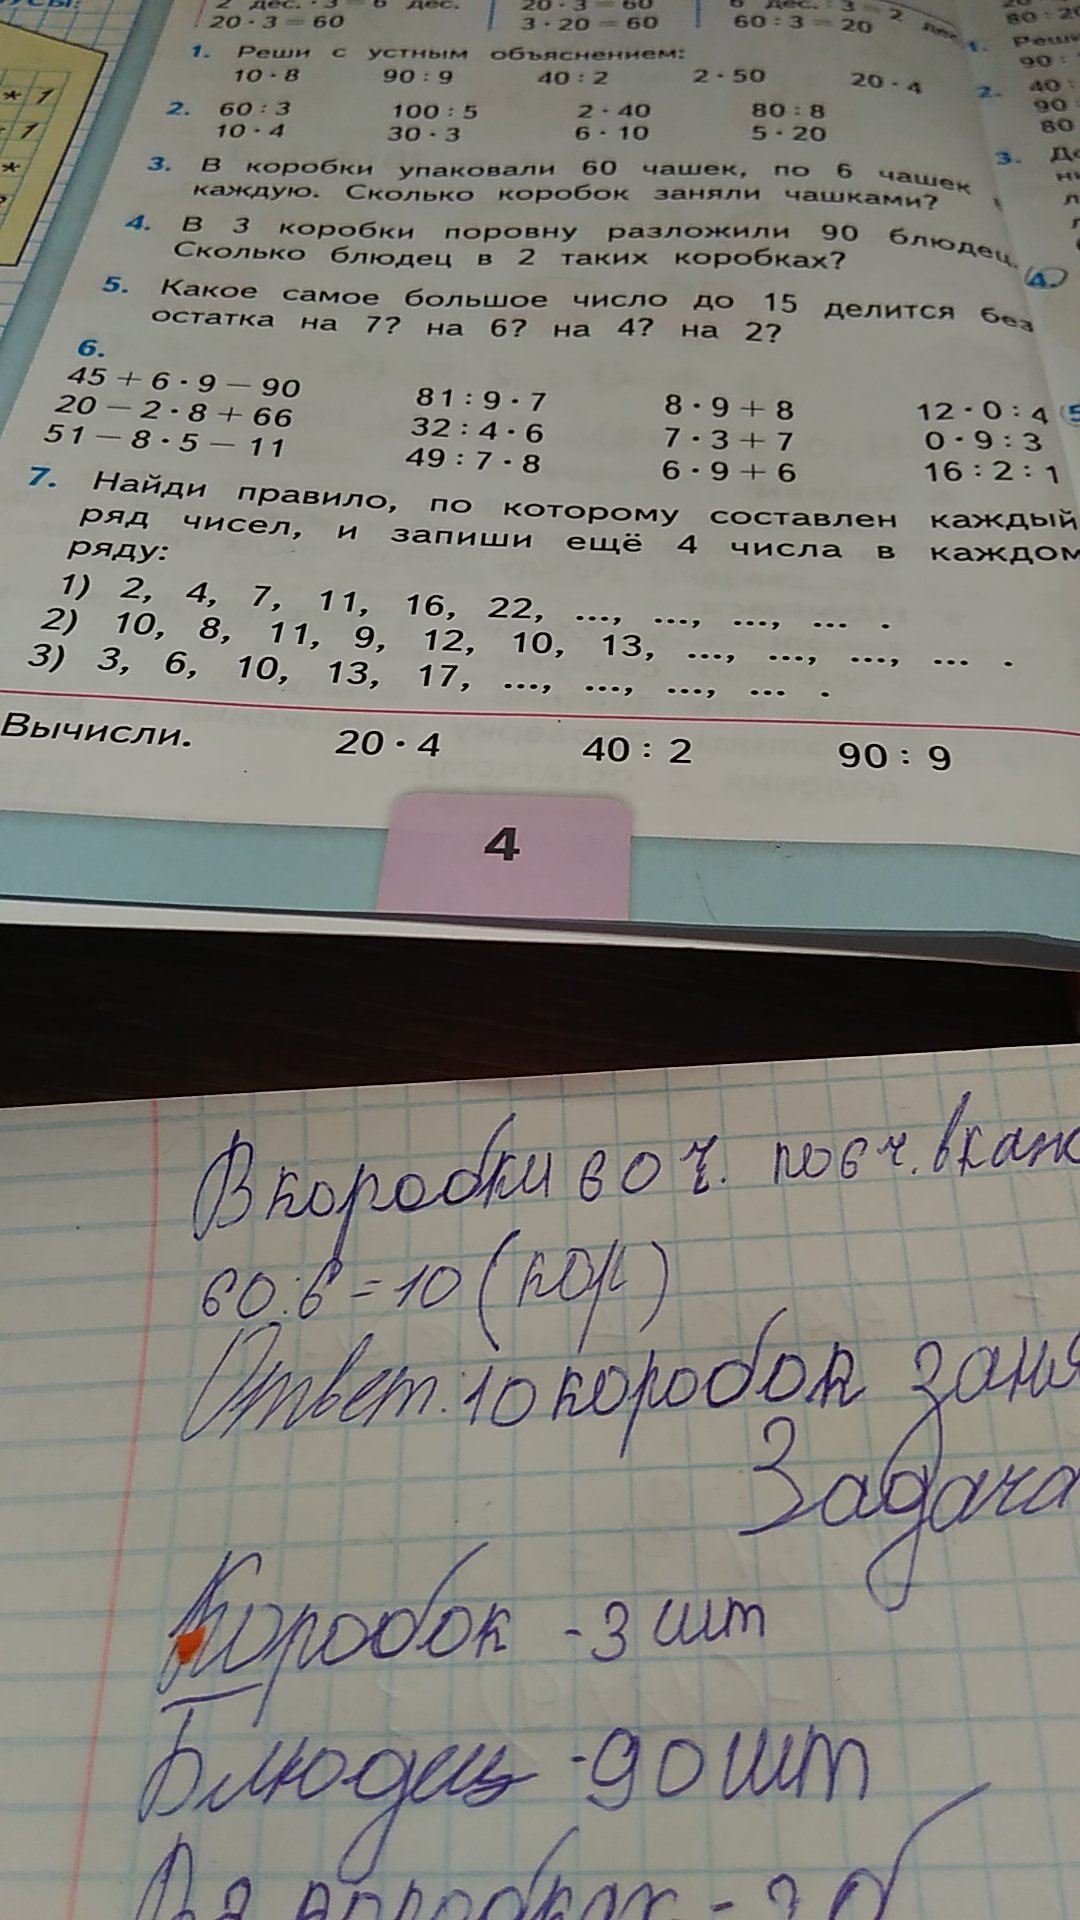 2 дес. · 3 = 6 дес.
20 · 3 = 60
20 · 3 = 60
3 · 20 = 60
6 дес. : 3 = 2 дес.
60 : 3 = 20
1. Реши с устным объяснением:
10 · 8 90 : 9 40 : 2 2 · 50 20 · 4
2. 60 : 3 100 : 5 2 · 40 80 : 8
10 · 4 30 · 3 6 · 10 5 · 20
3. В коробки упаковали 60 чашек, по 6 чашек
каждую. Сколько коробок заняли чашками?
4. В 3 коробки поровну разложили 90 блюдец.
Сколько блюдец в 2 таких коробках?
5. Какое самое большое число до 15 делится без
остатка на 7? на 6? на 4? на 2?
6.
45 + 6 · 9 – 90 81 : 9 · 7 8 · 9 + 8 12 · 0 : 4
20 – 2 · 8 + 66 32 : 4 · 6 7 · 3 + 7 0 · 9 : 3
51 – 8 · 5 – 11 49 : 7 · 8 6 · 9 + 6 16 : 2 : 1
7. Найди правило, по которому составлен каждый
ряд чисел, и запиши ещё 4 числа в каждом
ряду:
1) 2, 4, 7, 11, 16, 22, ..., ..., ..., ... .
2) 10, 8, 11, 9, 12, 10, 13, ..., ..., ..., ... .
3) 3, 6, 10, 13, 17, ..., ..., ..., ... .
Вычисли. 20 · 4 40 : 2 90 : 9
4
1.
90 :
2. 40 :
90
80
3.
4.
В коробки 60 ч. по 6 ч. в каж
60 : 6 = 10 (кор)
Ответ: 10 коробок заня
Задача
Коробок - 3 шт
Блюдец - 90 шт